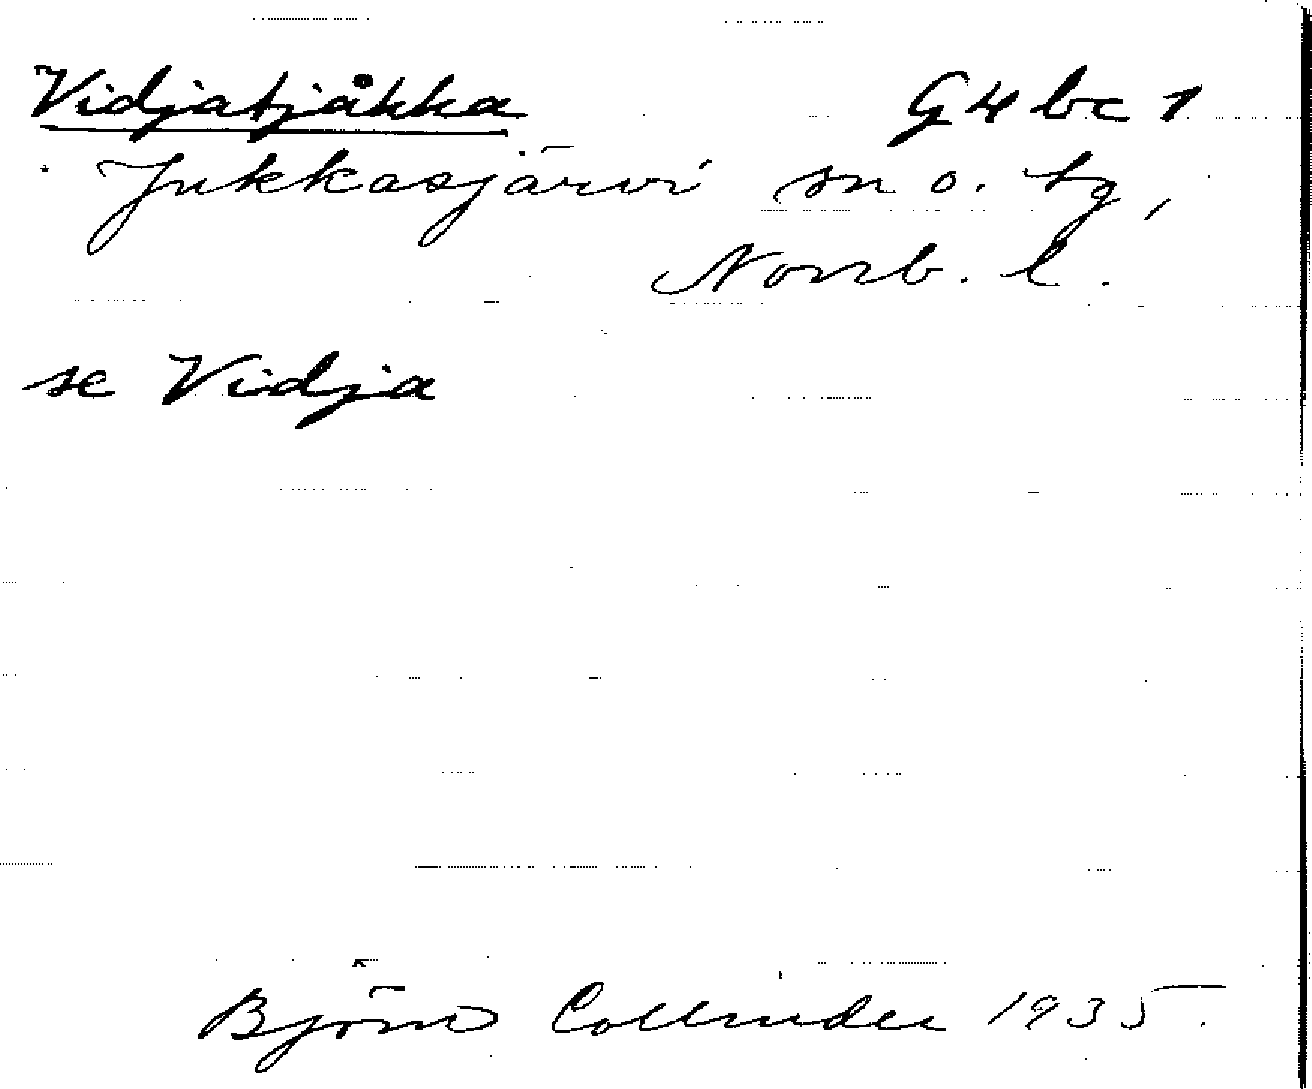 Vidjatjåkka G4bc1
Jukkasjärvi sn o. tg,
Norrb. l.
se Vidja
Björn Collinder 1935.